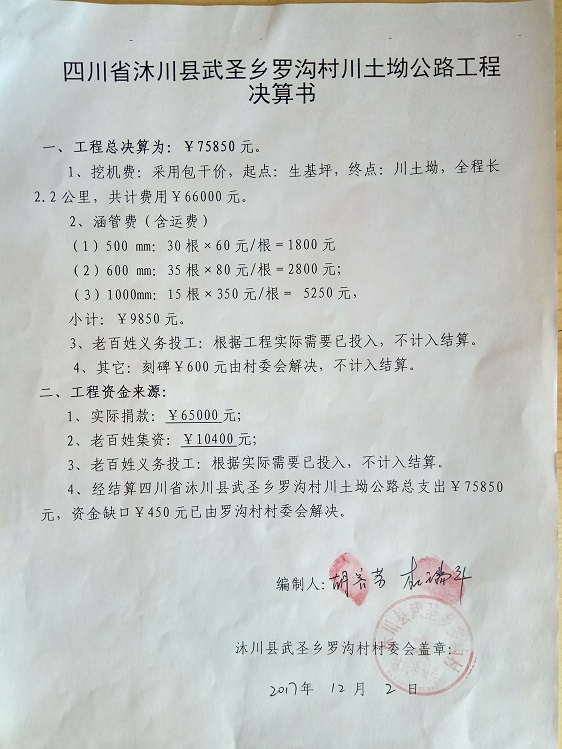 四川省沐川县武圣乡罗沟村川土坳公路工程
决算书
一、工程总决算为：￥75850元。
1、挖机费：采用包干价，起点：生基坪，终点：川土坳，全程长
2.2公里，共计费用￥66000元。
2、涵管费（含运费）
（1）500 mm：30根×60元/根=1800元
（2）600 mm：35根×80元/根=2800元；
（3）1000mm：15根×350元/根= 5250元，
小计：￥9850元。
3、老百姓义务投工：根据工程实际需要已投入，不计入结算。
4、其它：刻碑￥600元由村委会解决，不计入结算。
二、工程资金来源：
1、实际捐款：￥65000元；
2、老百姓集资：￥10400元；
3、老百姓义务投工：根据实际需要已投入，不计入结算。
4、经结算四川省沐川县武圣乡罗沟村川土坳公路总支出￥75850
元，资金缺口￥450元已由罗沟村村委会解决。
编制人：
沐川县武圣乡罗沟村村委会盖章：
2017年 12月 2日